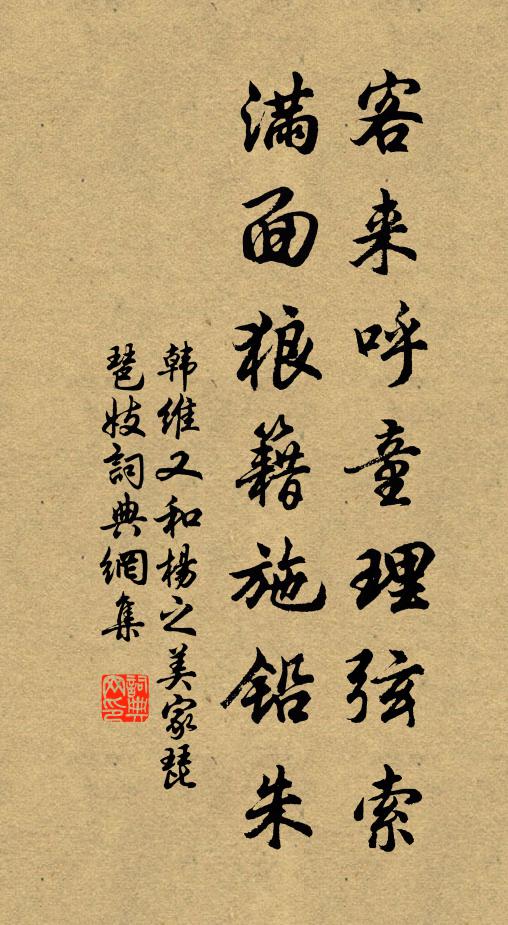 客来呼童理弦索
满面狼籍施铅朱
韩维又和杨之美家琵
琶妓詞典網集
詞典网印